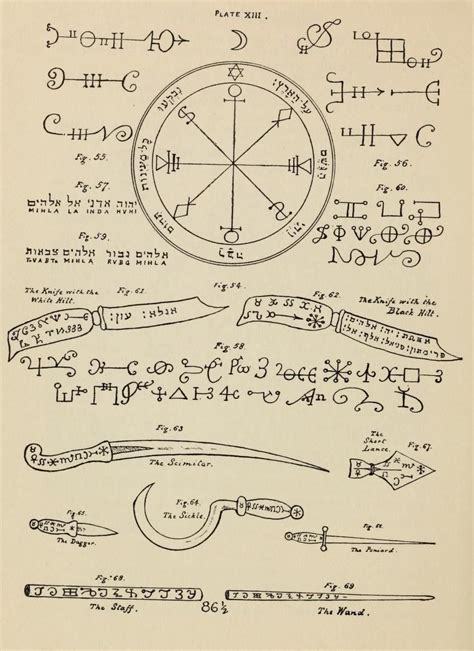 PLATE XIII.
נבקעו
על־הארץ׃
כל־מעינות
הגשם
תהום
ויהי
רבה
Fig. 55.
Fig. 56.
Fig. 57.
יהוה אדני אל אלהים
MIHLA LA INDA HVHI
Fig. 60.
Fig. 59.
אלהים גבור אלהים צבאות
MIHLA RVBG MIHLA
Fig. 61.
Fig. 54.
Fig. 62.
The Knife with the
White Hilt.
The Knife with the
Black Hilt.
Fig. 58.
Fig. 63
The Scimitar.
The
Short
Lance.
Fig. 67.
Fig. 65.
The Dagger.
Fig. 64.
The Sickle.
The Poniard.
Fig. 68.
The Staff.
86½
Fig. 69
The Wand.